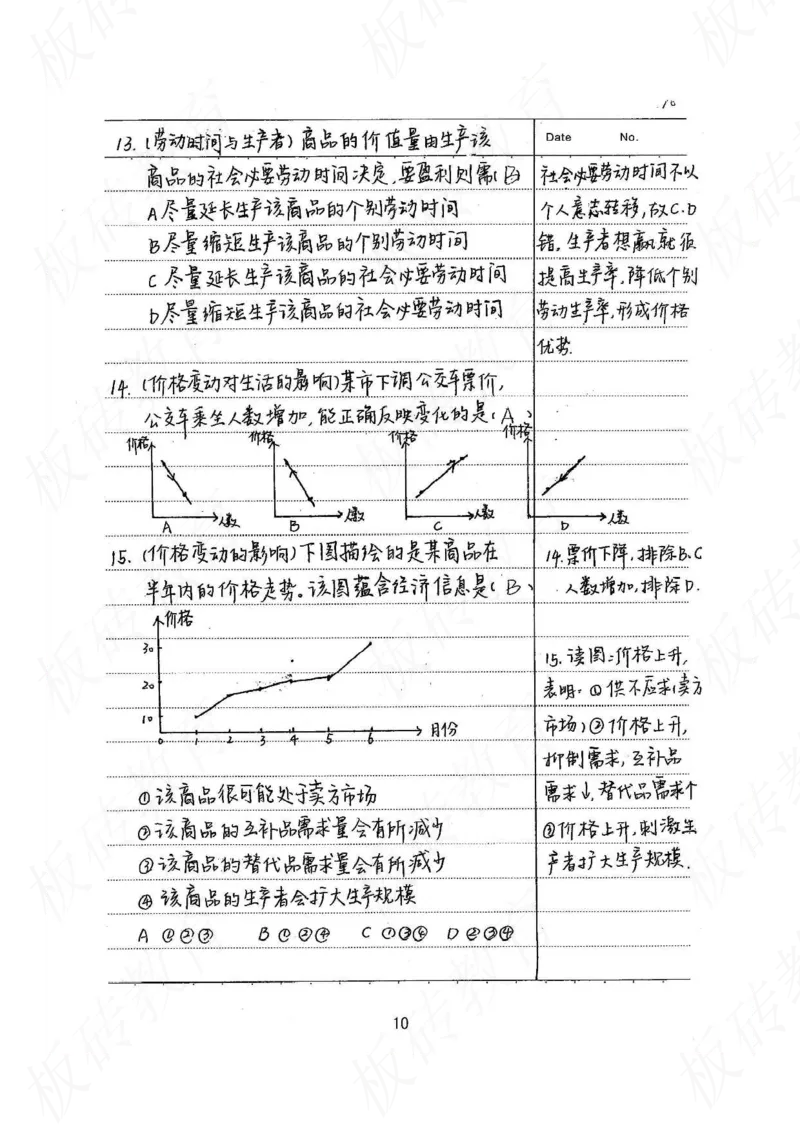 16
Date No.
13.(劳动时间与生产者)商品的价值量由生产该
商品的社会必要劳动时间决定,要盈利则需(B)
A尽量延长生产该商品的个别劳动时间
B尽量缩短生产该商品的个别劳动时间
C尽量延长生产该商品的社会必要劳动时间
D尽量缩短生产该商品的社会必要劳动时间
社会必要劳动时间不以
个人意志转移,故C.D
错.生产者想赢就很
提高生产率,降低个别
劳动生产率,形成价格
优势.
14.(价格变动对生活的影响)某市下调公交车票价,
公交车乘坐人数增加,能正确反映变化的是(A)
价格 价格 价格 价格
人数 人数 人数 人数
A B C D
15.(价格变动的影响)下图描绘的是某商品在
半年内的价格走势。该图蕴含经济信息是(B)
14.票价下降,排除B.C
人数增加,排除D.
价格
30
20
10
0 1 2 3 4 5 6 月份
①该商品很可能处于卖方市场
②该商品的互补品需求量会有所减少
③该商品的替代品需求量会有所减少
④该商品的生产者会扩大生产规模
A ①②③ B ①②④ C ①③④ D ②③④
15.读图:价格上升,
表明:①供不应求(卖方
市场)②价格上升,
抑制需求,互补品
需求↓,替代品需求个
③价格上升,刺激生
产者扩大生产规模.
10
板砖教育